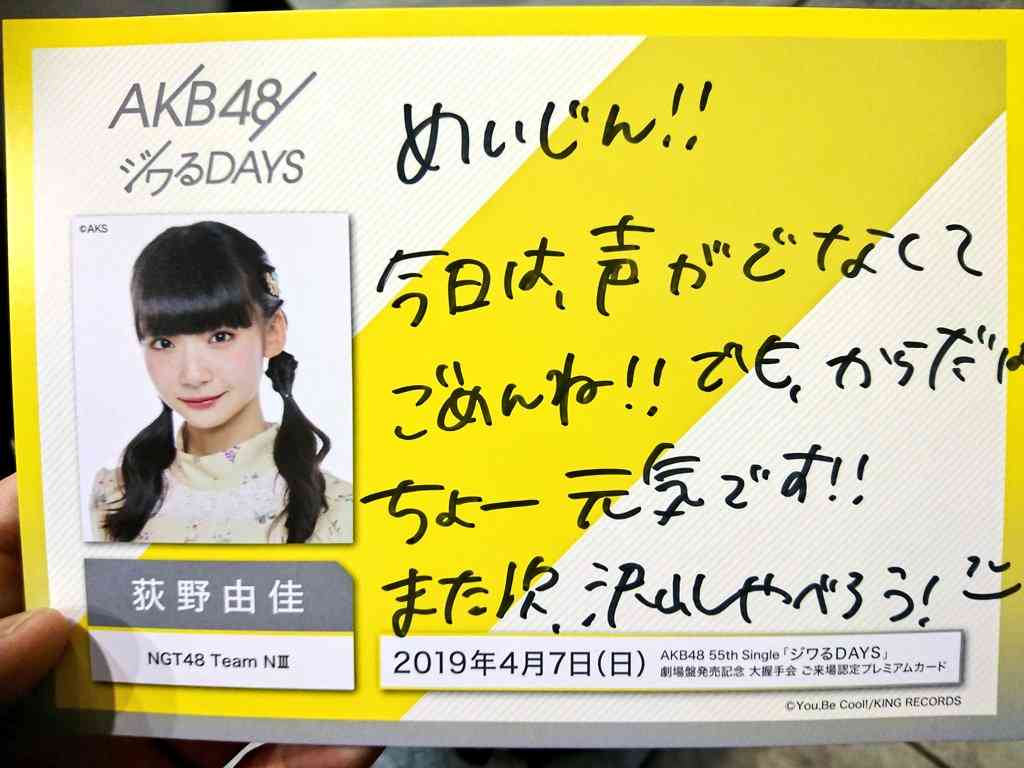 AKB48
ジワるDAYS
©AKS
荻野由佳
NGT48 Team NⅢ
めいじん!!
今日は、声がでなくて
ごめんね!! でも、からだは
ちょー元気です!!
また次、沢山しゃべろう!
2019年4月7日(日)
AKB48 55th Single「ジワるDAYS」
劇場盤発売記念 大握手会 ご来場認定プレミアムカード
©You,Be Cool!/KING RECORDS